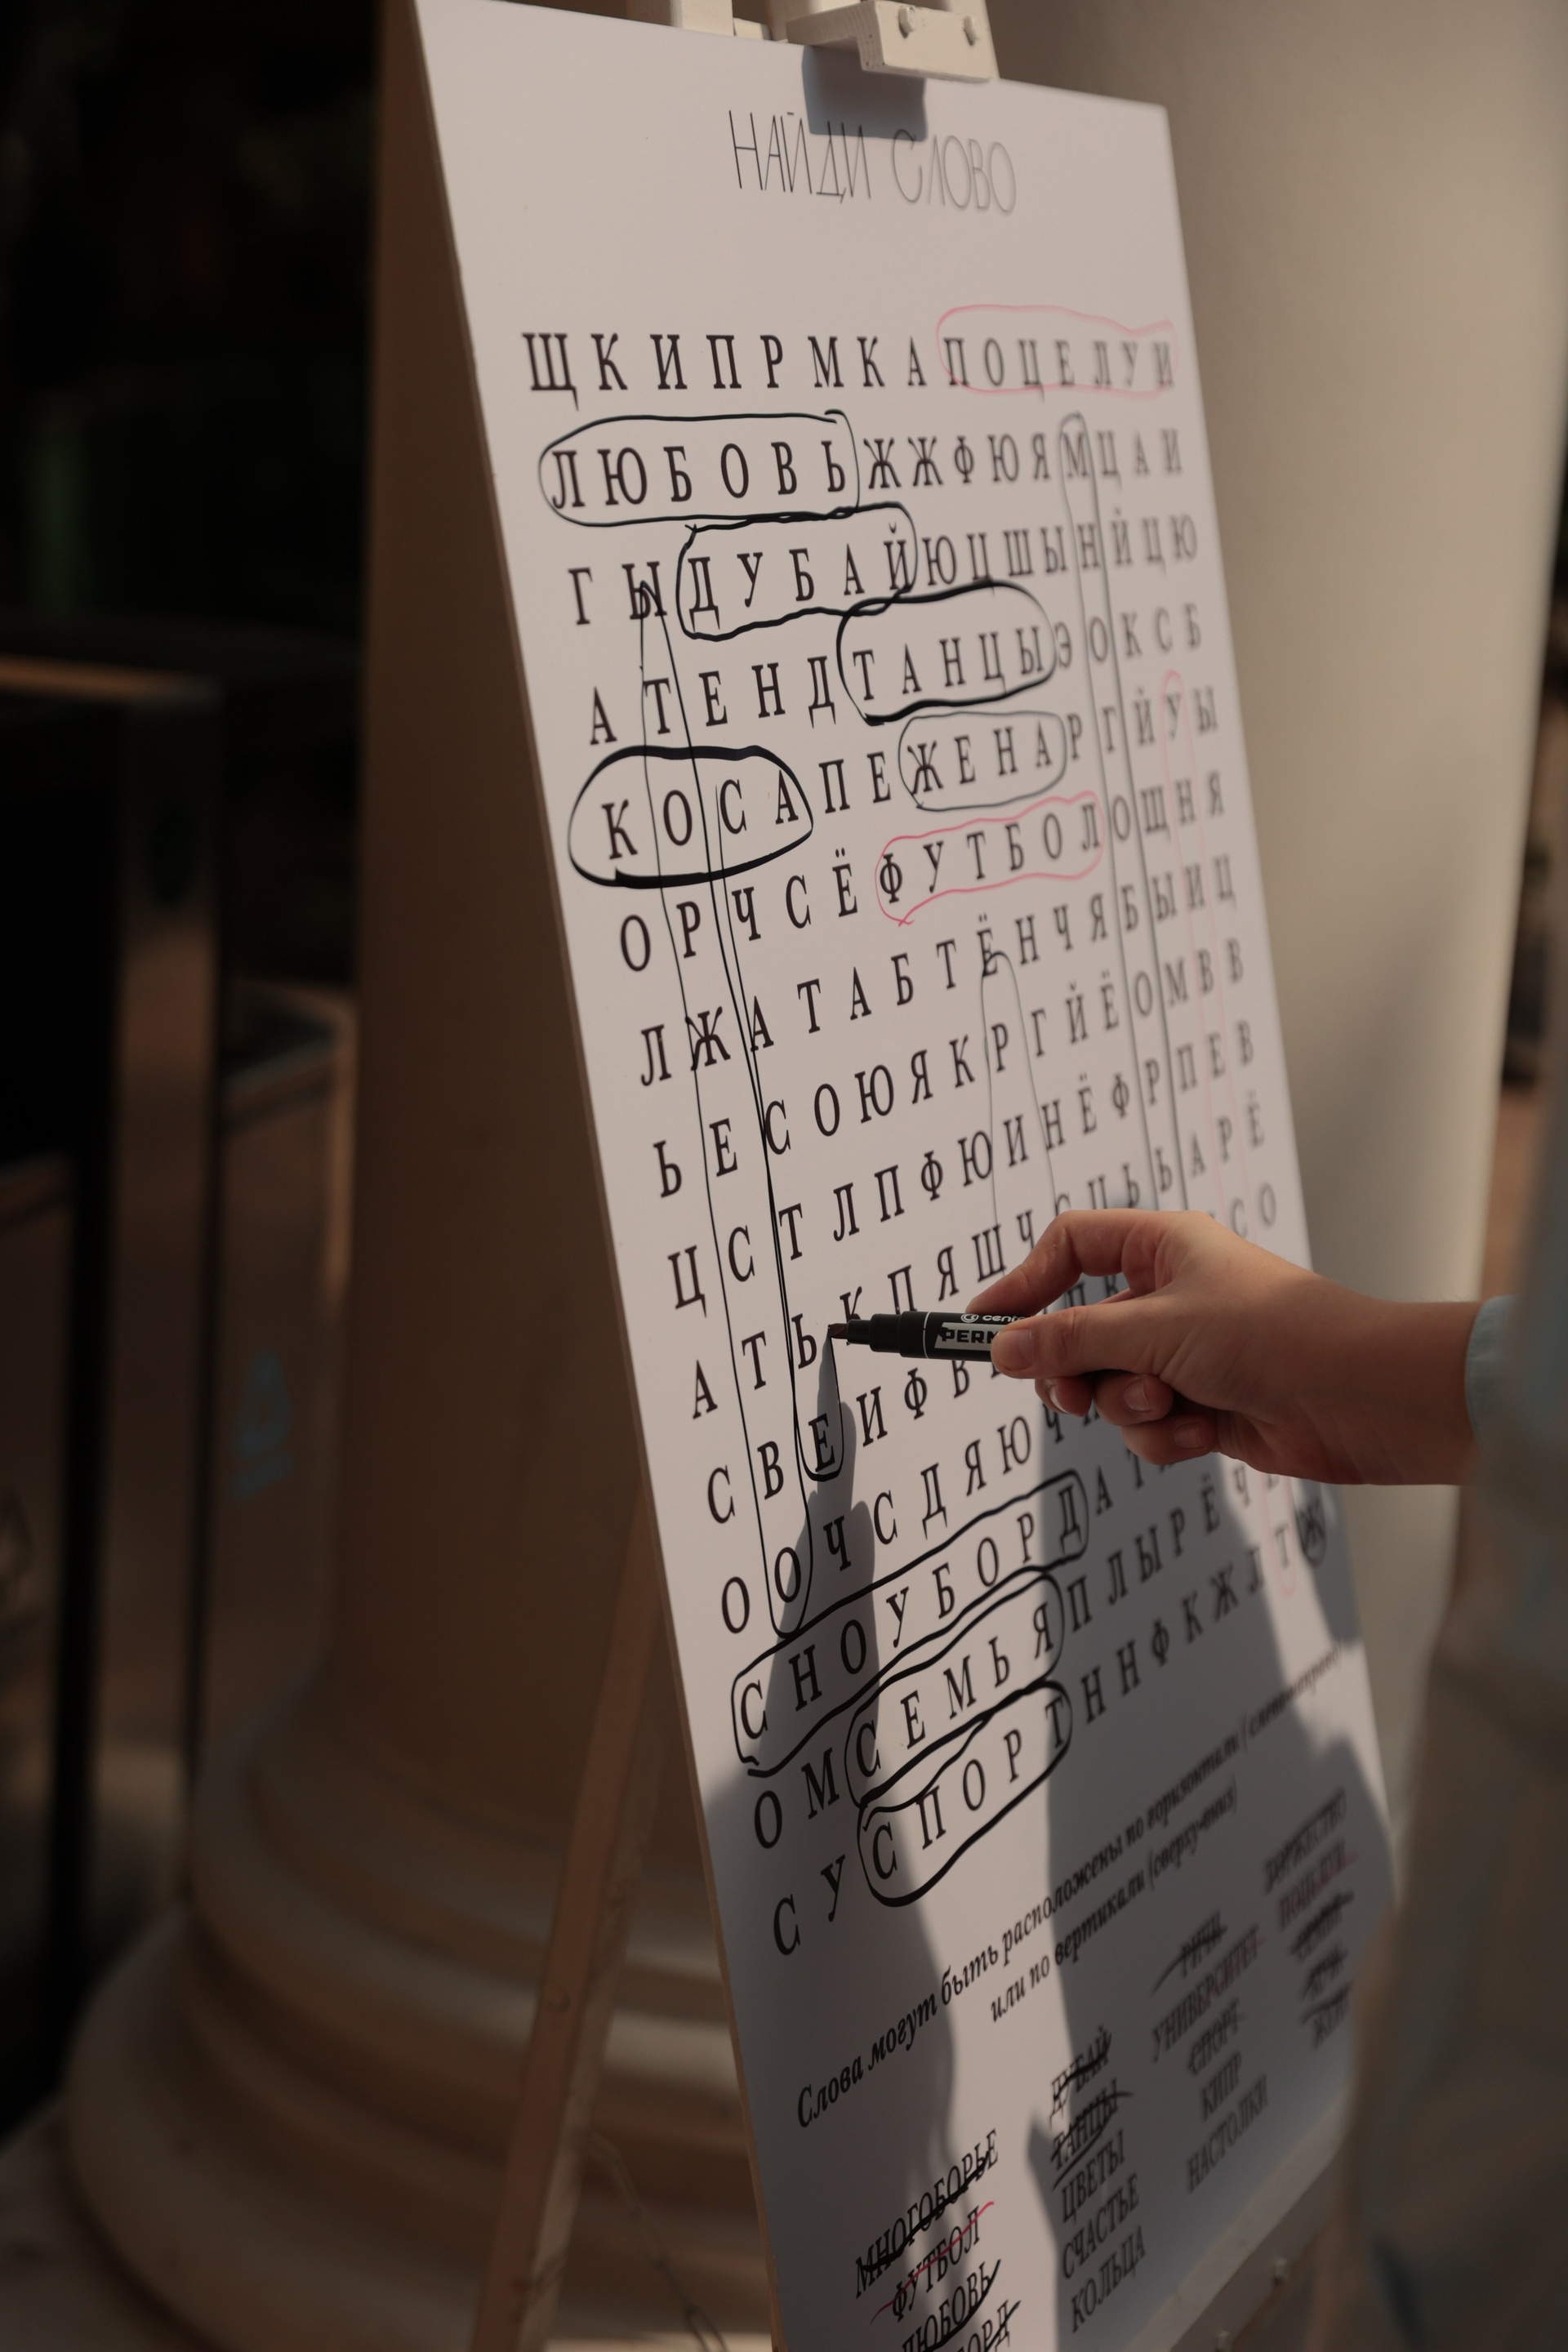 НАЙДИ СЛОВО
Щ К И П Р М К А П О Ц Е Л У И
Л Ю Б О В Ь Ж Ж Ф Ю Я М Ц А И
Г Ы Д У Б А Й Ю Ц Ш Ы Н Й Ц Ю
А Т Е Н Д Т А Н Ц Ы Э О К С Б
К О С А П Е Ж Е Н А Р Г Й У Ы
О Р Ч С Ё Ф У Т Б О Л О Щ Н Я
Л Ж А Т А Б Т Ё Н Ч Я Б Ы И Ц
Ь Е С О Ю Я К Р Г Й Ё О М В В
Ц С Т Л П Ф Ю И Н Ё Ф Р П Е В
А Т Ь К П Я Ш Ч С Ц Ь Ь А Р Ё
С В Е И Ф В С О
О О Ч С Д Я Ю Ч
С Н О У Б О Р Д А Т
О М С Е М Ь Я П Л Ы Р Ё Ч
С У С П О Р Т Н Н Ф К Ж Л Т Ж
Слова могут быть расположены по горизонтали
или по вертикали (сверху-вниз)
МНОГОБОРЬЕ
ФУТБОЛ
ЛЮБОВЬ
ДУБАЙ
ТАНЦЫ
ЦВЕТЫ
СЧАСТЬЕ
КОЛЬЦА
УНИВЕРСИТЕТ
СПОРТ
КИПР
НАСТОЛКИ
ПОЦЕЛУИ
ЖЕНА
PERM